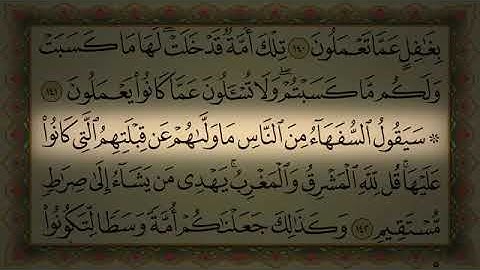 بِغَٰفِلٍ عَمَّا تَعۡمَلُونَ ١٤٠ تِلۡكَ أُمَّةٞ قَدۡ خَلَتۡۖ لَهَا مَا كَسَبَتۡ
وَلَكُم مَّا كَسَبۡتُمۡۖ وَلَا تُسۡـَٔلُونَ عَمَّا كَانُواْ يَعۡمَلُونَ ١٤١
۞ سَيَقُولُ ٱلسُّفَهَآءُ مِنَ ٱلنَّاسِ مَا وَلَّىٰهُمۡ عَن قِبۡلَتِهِمُ ٱلَّتِي كَانُواْ
عَلَيۡهَاۚ قُل لِّلَّهِ ٱلۡمَشۡرِقُ وَٱلۡمَغۡرِبُۚ يَهۡدِي مَن يَشَآءُ إِلَىٰ صِرَٰطٖ
مُّسۡتَقِيمٖ ١٤٢ وَكَذَٰلِكَ جَعَلۡنَٰكُمۡ أُمَّةٗ وَسَطٗا لِّتَكُونُواْ